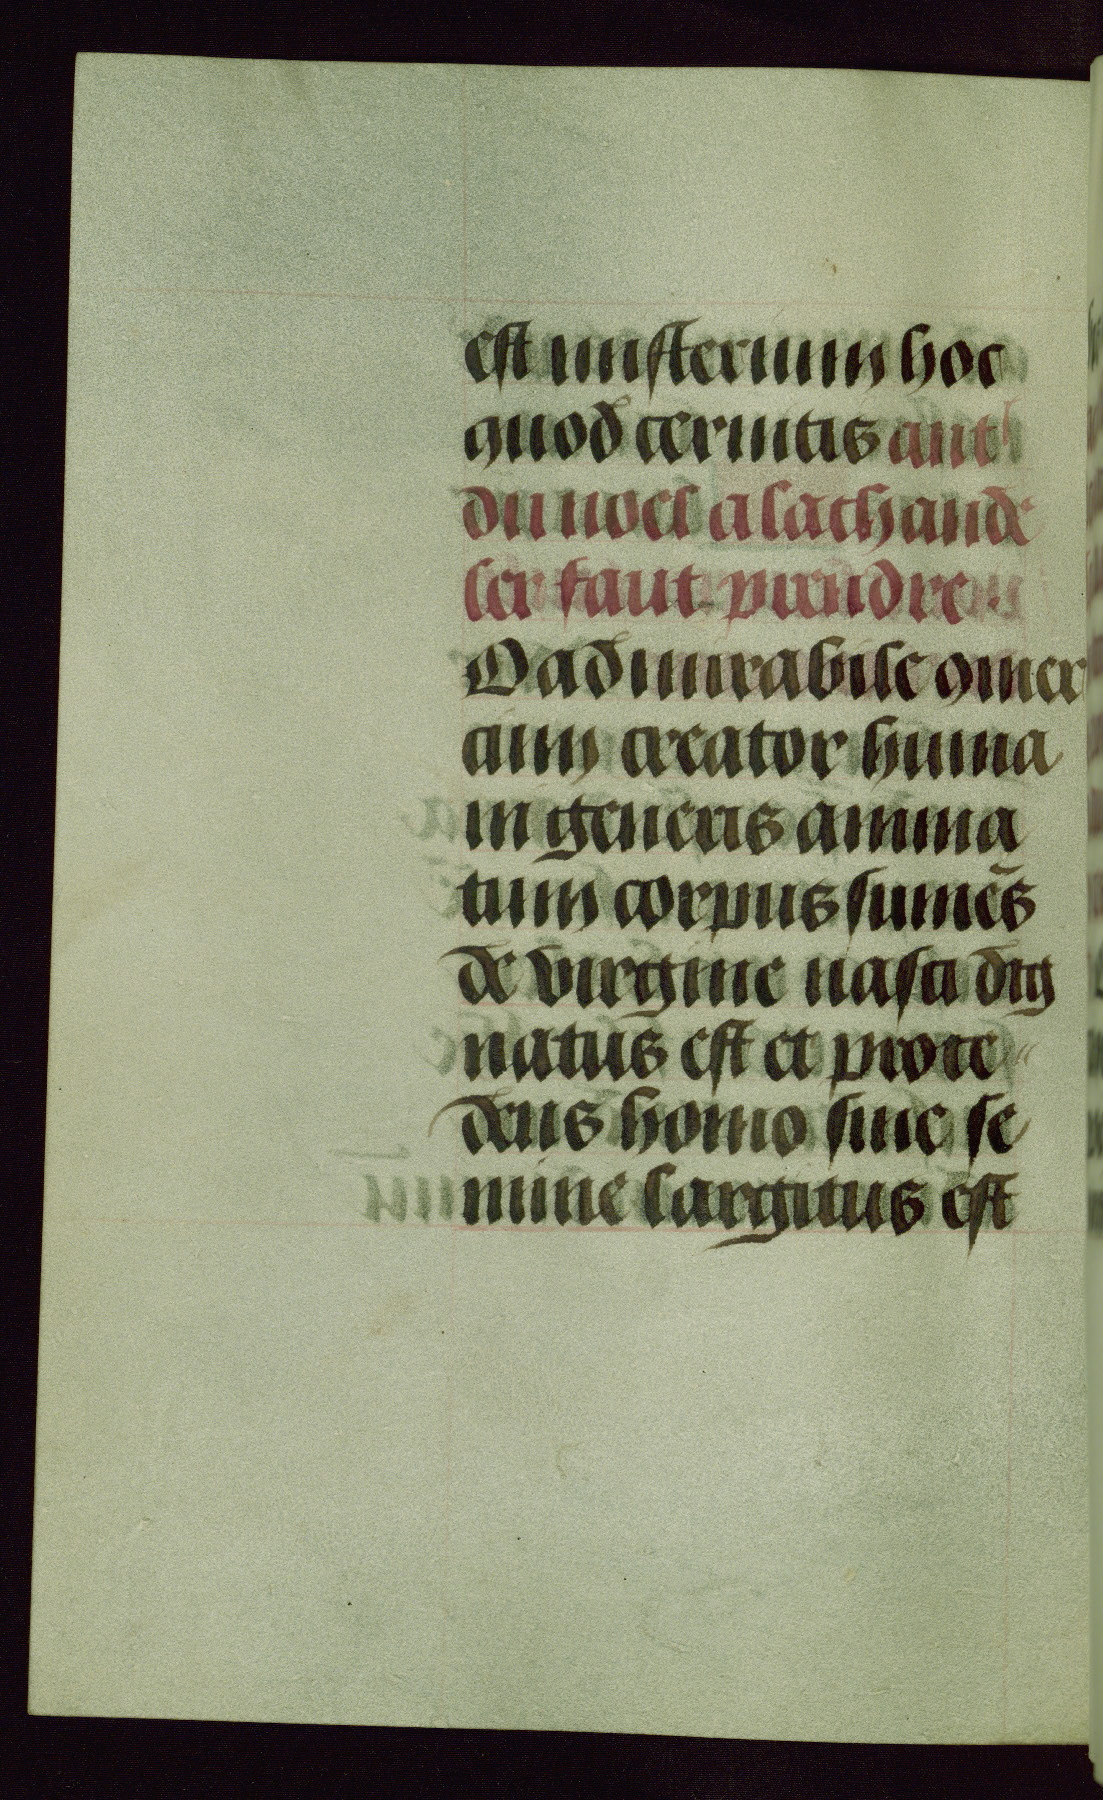 est misterium hoc
quod cernitis ant
du noel a lachande
ler faut prendre.
O admirabile ꝯmer
cium creator huma
ni generis anima
tum corpus sumẽs
de virgine nasci dig
natus est et proce
dens homo sine se
mine largitus est